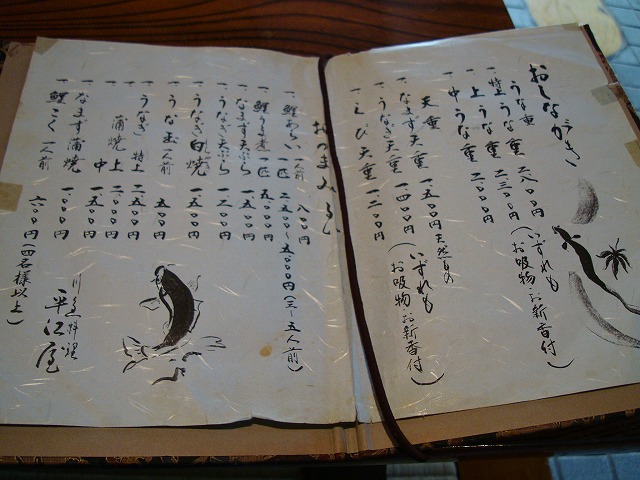 おしながき
うな重
一、特上うな重 二八〇〇円
一、上うな重 二三〇〇円
一、中うな重 二〇〇〇円
(いずれも
お吸物・お新香付)
天重
一、なまず天重 一五〇〇円 天然もの
一、うなぎ天重 一四〇〇円
一、えび天重 一二〇〇円
(いずれも
お吸物・お新香付)
おつまみるい
一、鯉あらい 一人前 八〇〇円
一匹 二五〇〇〜五〇〇〇円(三〜五人前)
一、鯉うま煮 一匹 五〇〇〇円
一、なまず天ぷら 一五〇〇円
一、うなぎ天ぷら 一二〇〇円
一、うなぎ白焼 一五〇〇円
一、うな玉 一人前 五〇〇円
一、うなぎ 特上 二五〇〇円
蒲焼 上 二〇〇〇円
中 一五〇〇円
一、なまず蒲焼 一〇〇〇円
一、鯉こく 一人前 六〇〇円(四名様以上)
川魚料理
平江屋